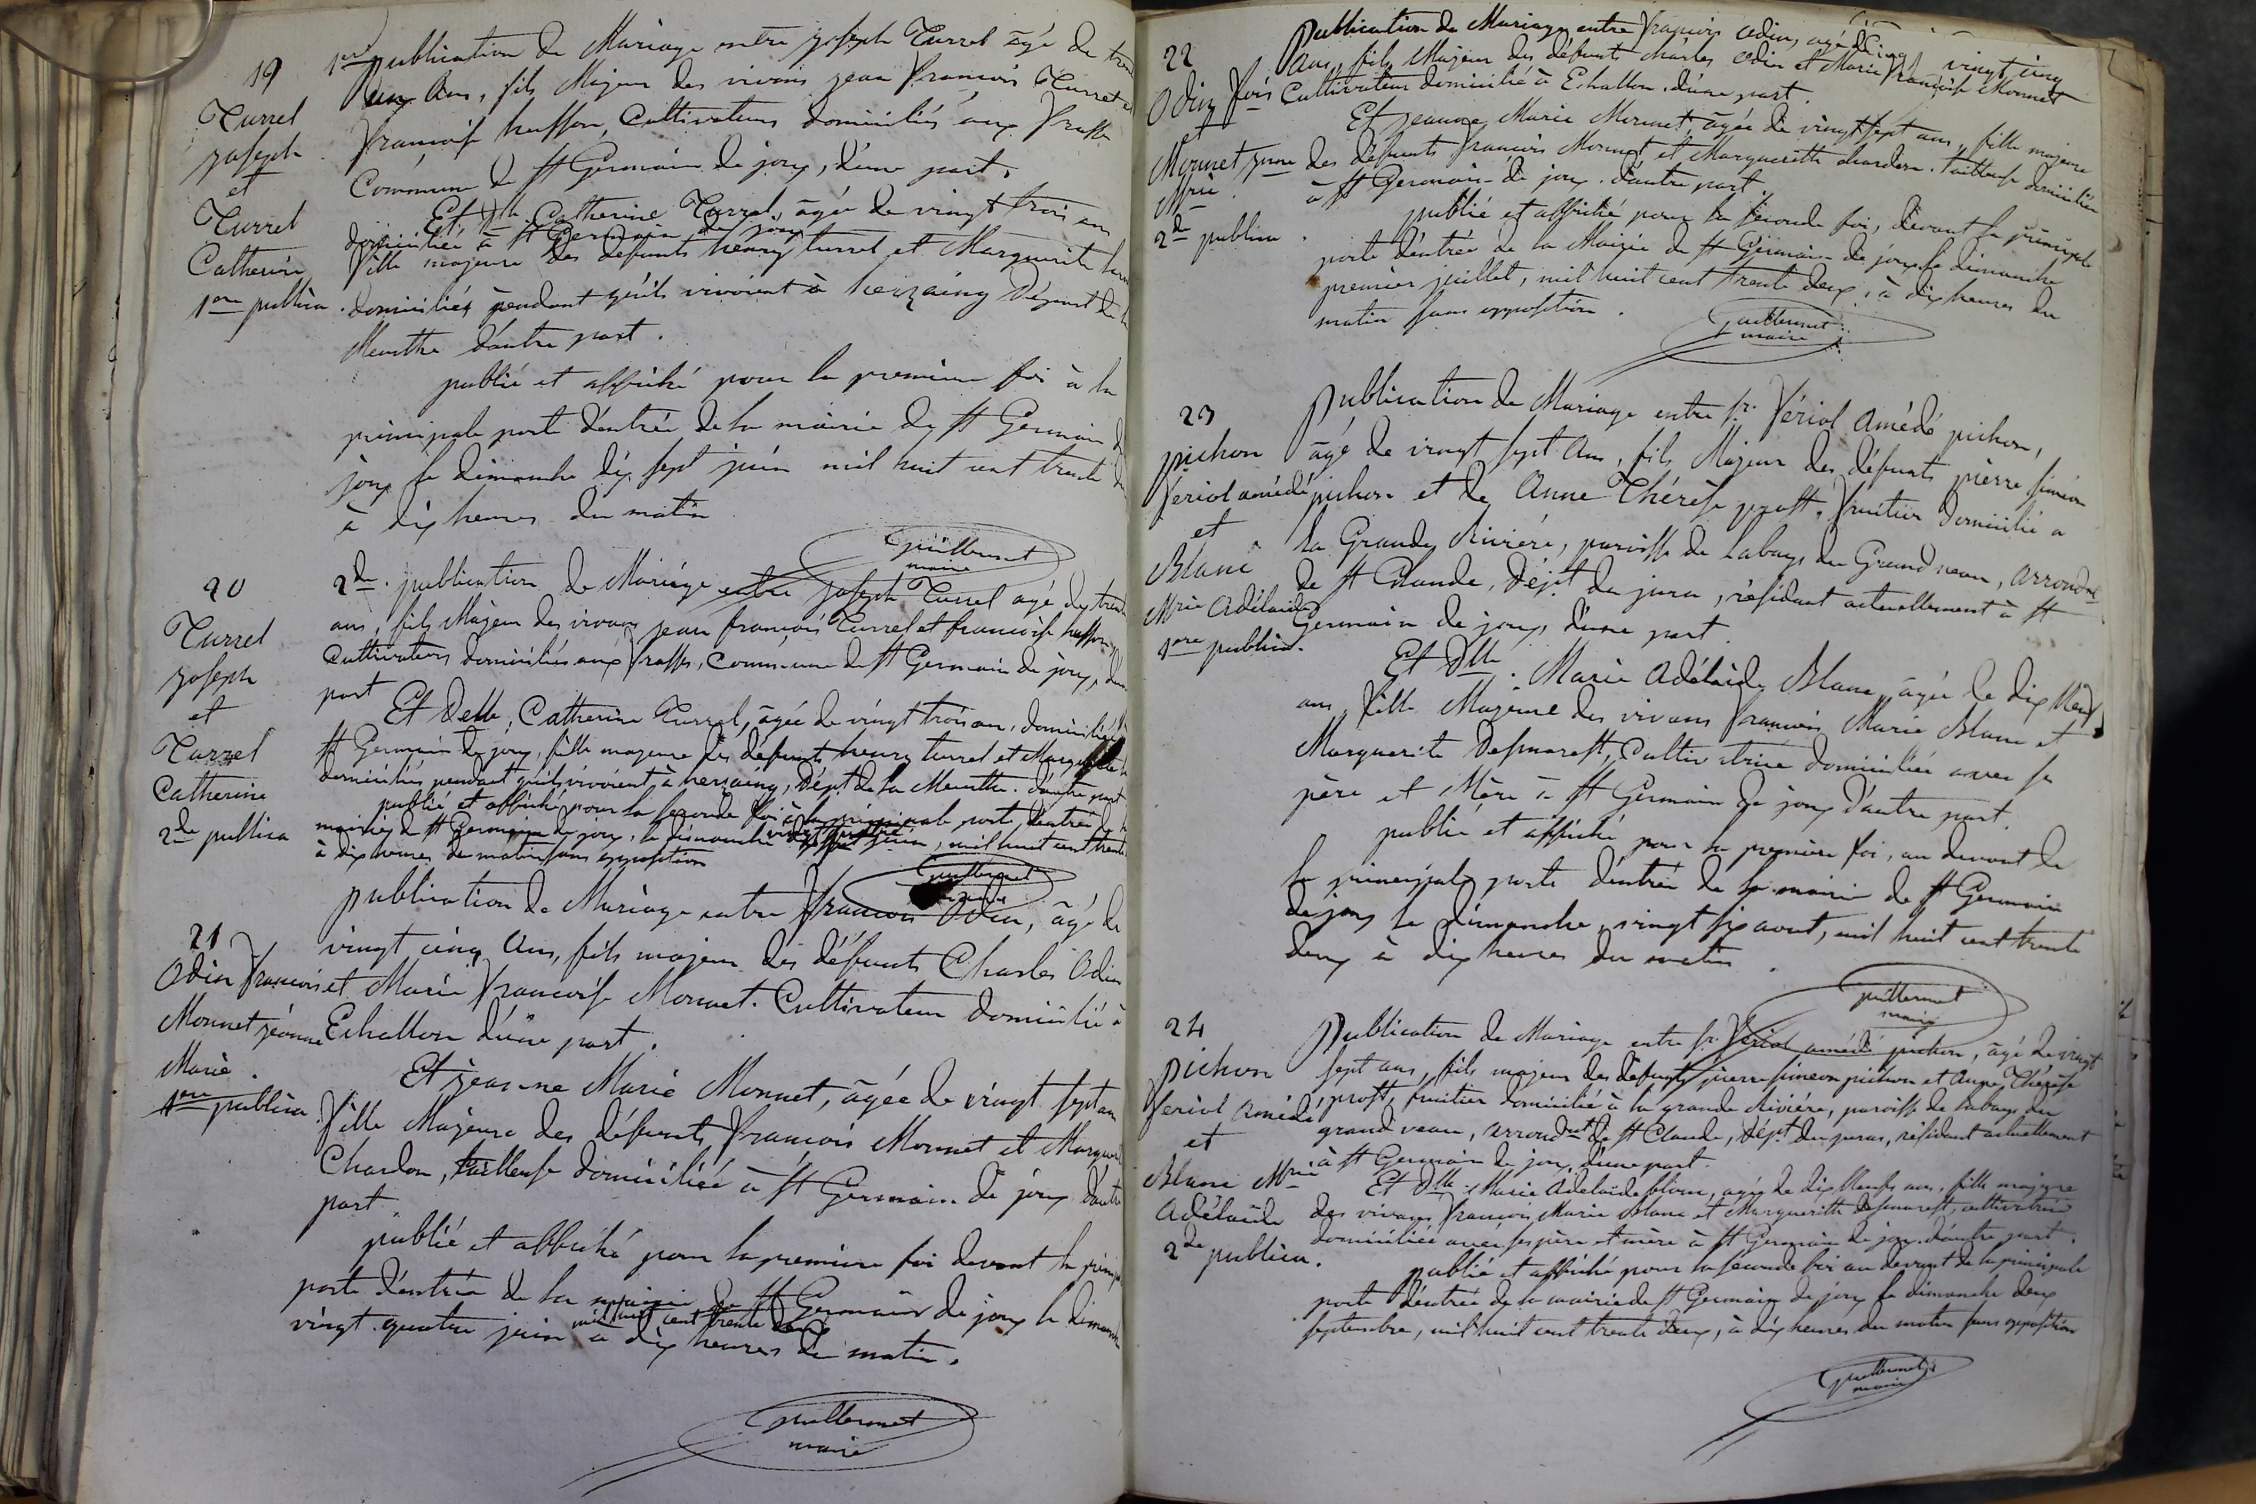 19
Turrel
joseph
et
Turrel
Catherine
1ere publica.
1ere publication de Mariage entre joseph Turrel âgé de
ans, fils Majeur des vivans jean françois Turrel et
françoise husson, Cultivateurs domiciliés aux
Commune de St Germain de joux, d'une part,
Et Dlle Catherine Turrel, âgée de vingt trois ans
domiciliée à St Germain de joux
fille majeure des défunts henry turrel et Marguerite
domiciliés pendant qu'ils vivoient à herzaing Départ de la
Meurthe d'autre part.
publié et affiché pour la première foi à la
principale porte d'entrée de la mairie de St Germain de
joux le dimanche dix sept juin mil huit cent trente
à dix heures du matin
Guillermet
maire
20
Turrel
joseph
et
Turrel
Catherine
2de publica
2de publication de Mariage entre joseph Turrel agé de trente
ans, fils Majeur des vivans jean françois Turrel et francoise husson
Cultivateurs domiciliés aux, Commune de St Germain de joux, d'une
part
Et Delle Catherine Turrel, âgée de vingt trois ans, domiciliée
St Germain de joux, fille majeure des défunts henry turrel et Marguerite
domiciliés pendant qu'ils vivoient à herzaing, Dépt de la Meurthe d'autre part
publié et affiché pour la seconde foi à la principale porte d'entrée de la
mairie de St Germain de joux, le dimanche vingt quatre juin, mil huit cent trente
à dix heures du matin sans opposition
Guillermet
maire
21
Odin francois
Monnet jeanne
Marie.
1ere publica
publication de Mariage entre francois Odin, âgé de
vingt cinq ans, fils majeur des défunts Charles Odin
et Marie francoise Monnet. Cultivateur domicilié à
Echallon d'une part.
Et jeanne Marie Monnet, âgée de vingt sept ans
fille Majeure des défunts francois Monnet et Marguerite
Chardon, tailleuse domiciliée à St Germain de joux d'autre
part
publié et affiché pour la premiere foi devant la principale
porte d'entrée de la mairie de St Germain de joux le dimanche
mil huit cent trente deux
vingt quatre juin à dix heures du matin.
Guillermet
maire
22
Odin fois
et
Monnet jnne
Mrie
2de publica.
Publication de Mariage entre francois Odin, agé de vingt cinq
ans, fils Majeur des défunts Charles Odin et Marie françoise Monnet
Cultivateur domicilié à Echallon d'une part.
Et jeanne Marie Monnet, âgée de vingt sept ans, fille majeure
des défunts francois Monnet et Marguerite chardon. tailleuse domiciliée
à St Germain de joux d'autre part.
publié et affiché pour la seconde foi, devant la principale
porte d'entrée de la Mairie de St Germain de joux le dimanche
premier juillet, mil huit cent trente deux, à dix heures du
matin sans opposition.
Guillermet
maire
23
pichon
fériol amédé
et
Blanc
Mrie Adélaide
1ere public.
Publication de Mariage entre sr. fériol Amédé pichon,
âgé de vingt sept ans, fils Majeur des défunts pierre siméon
pichon et de Anne Thérèse prost. fruitier domicilié a
la Grande Rivière, paroisse de Labaye du Grandveau, arrondmt
de St Claude, Dépt du jura, résidant actuellement à St
Germain de joux, d'une part
Et Dlle. Marie Adélaide Blanc, âgée de dix Neuf
ans, fille Majeure des vivans francois Marie Blanc et
Marguerite Desmarest, Cultivatrice domiciliée avec se
père et Mère à St Germain de joux d'autre part.
publié et affiché pour la première foi, au devant de
la principale porte d'entrée de la mairie de St Germain
de joux le dimanche, vingt six aout, mil huit cent trente
deux à dix heures du matin.
Guillermet
maire
24
pichon
feriol Amédé
et
Blanc Mrie
Adélaide
2de publica.
Publication de Mariage entre sr. fériol amédé pichon, âgé de vingt
sept ans, fils majeur des défunts pierre simeon pichon et Anne Thérèse
prost, fruitier domicilié à la grande Rivière, paroisse de Labaye du
grand veau, arrondmt de St Claude, Dépt du juras, résidant actuellement
à St Germain de joux, d'une part.
Et Dlle. Marie Adelaide blanc, agée de dix Neufs ans, fille majeure
des vivans francois Marie Blanc et Marguerite Desmarest, cultivatrice
domiciliée avec ses père et mère à St Germain de joux d'autre part.
publié et affiché pour la seconde foi au devant de la principale
porte d'entrée de la mairie de St Germain de joux le dimanche deux
septembre, mil huit cent trente deux, à dix heures du matin sans opposition
Guillermet
maire